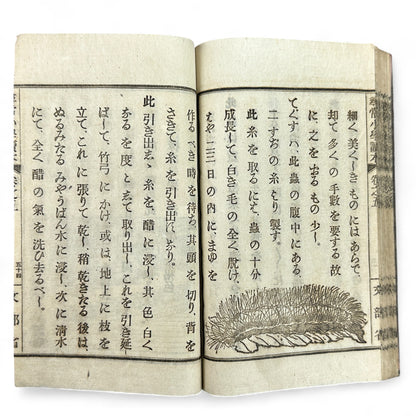 細く美くしきものにはあらで、
却て多くの手數を要する故
に之をおるもの少し。
てぐすは此蟲の腹中にある、
二すぢの糸より製す。
此糸を取るにはこ、蟲の十分
成長して、白き毛の全く脱け、
もはや二三日の内に、まゆを
作るべき時を待ち、其頭を切り、背を
さきて、糸を引き出すなり。
此引き出しゝ糸を、醋に浸し、其色、白く
なるを度として取り出し、これを引き延
ばして、竹弓にかけ、或は、地上に枝を
立て、これに張りて乾し、稍乾きたる後は、
ぬるみたるみやうばん水に浸し、次に清水
にて、全く醋の氣を洗ひ去るべし。
五十四
文部省